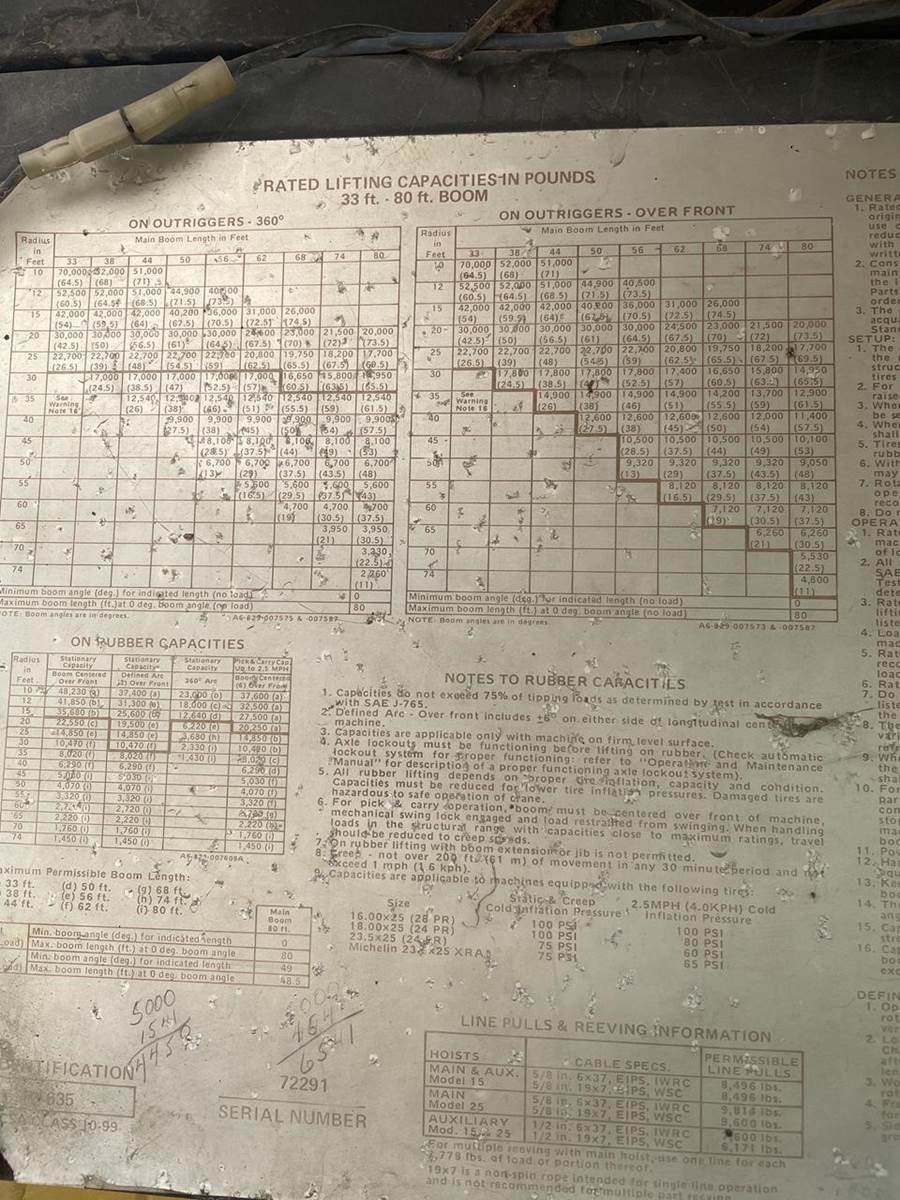 RATED LIFTING CAPACITIES IN POUNDS
33 ft. - 80 ft. BOOM
ON OUTRIGGERS - 360°
Radius in Feet Main Boom Length in Feet
33 38 44 50 56 62 68 74 80
10 70,000 (64.5) 52,000 (68) 51,000 (71)
12 52,500 (60.5) 52,000 (64.5) 51,000 (68.5) 44,900 (71.5) 40,500 (73.5)
15 42,000 (54) 42,000 (59.5) 42,000 (64) 40,200 (67.5) 36,000 (70.5) 31,000 (72.5) 26,000 (74.5)
20 30,000 (42.5) 30,000 (50) 30,000 (56.5) 30,000 (61) 30,000 (64.5) (67.5) 23,000 (70) 21,500 (72) 20,000 (73.5)
25 22,700 (26.5) 22,700 (39) 22,700 (48) 22,700 (54.5) 22,700 (59) 20,800 (62.5) 19,750 (65.5) 18,200 (67.5) 17,700 (69.5)
30 17,000 (24.5) 17,000 (38.5) 17,000 (47) 17,000 (52.5) 17,000 (57) 16,650 (60.5) 15,800 (63.5) 14,950 (65.5)
35 See Warning Note 16 12,540 (26) 12,540 (38) 12,540 (46) 12,540 (51) 12,540 (55.5) 12,540 (59) 12,540 (61.5)
40 9,900 (27.5) 9,900 (38) 9,900 (45) 9,900 (50) 9,900 (54) 9,900 (57.5)
45 8,100 (28.5) 8,100 (37.5) 8,100 (44) 8,100 (49) 8,100 (53)
50 6,700 (13) 6,700 (29) 6,700 (37.5) 6,700 (43.5) 6,700 (48)
55 5,600 (16.5) 5,600 (29.5) 5,600 (37.5) 5,600 (43)
60 4,700 (19) 4,700 (30.5) 4,700 (37.5)
65 3,950 (21) 3,950 (30.5)
70 3,330 (22.5)
74 2,760 (11)
Minimum boom angle (deg.) for indicated length (no load) 0
Maximum boom length (ft.) at 0 deg. boom angle (no load) 80
NOTE: Boom angles are in degrees. A6-829-007575 & -007587
ON OUTRIGGERS - OVER FRONT
Radius in Feet Main Boom Length in Feet
33 38 44 50 56 62 68 74 80
10 70,000 (64.5) 52,000 (68) 51,000 (71)
12 52,500 (60.5) 52,000 (64.5) 51,000 (68.5) 44,900 (71.5) 40,500 (73.5)
15 42,000 (54) 42,000 (59.5) 42,000 (64) 40,200 (67.5) 36,000 (70.5) 31,000 (72.5) 26,000 (74.5)
20 30,000 (42.5) 30,000 (50) 30,000 (56.5) 30,000 (61) 30,000 (64.5) 24,500 (67.5) 23,000 (70) 21,500 (72) 20,000 (73.5)
25 22,700 (26.5) 22,700 (39) 22,700 (48) 22,700 (54.5) 22,700 (59) 20,800 (62.5) 19,750 (65.5) 18,200 (67.5) 17,700 (69.5)
30 17,800 (24.5) 17,800 (38.5) 17,800 17,800 (52.5) 17,400 (57) 16,650 (60.5) 15,800 14,950 (65.5)
35 See Warning Note 16 14,900 (26) 14,900 (38) 14,900 (46) 14,900 (51) 14,200 (55.5) 13,700 (59) 12,900 (61.5)
40 12,600 (27.5) 12,600 (38) 12,600 (45) 12,600 (50) 12,000 (54) 11,400 (57.5)
45 10,500 (28.5) 10,500 (37.5) 10,500 (44) 10,500 (49) 10,100 (53)
50 9,320 (13) 9,320 (29) 9,320 (37.5) 9,320 (43.5) 9,050 (48)
55 8,120 (16.5) 8,120 (29.5) 8,120 (37.5) 8,120 (43)
60 7,120 (19) 7,120 (30.5) 7,120 (37.5)
65 6,260 (21) 6,260 (30.5)
70 5,530 (22.5)
74 4,800 (11)
Minimum boom angle (deg.) for indicated length (no load) 0
Maximum boom length (ft.) at 0 deg. boom angle (no load) 80
NOTE: Boom angles are in degrees. A6-829-007573 & -007587
ON RUBBER CAPACITIES
Radius in Feet Stationary Capacity Boom Centered Over Front Stationary Capacity Defined Arc (2) Over Front Stationary Capacity 360° Arc Pick & Carry Cap. Up to 2.5 MPH Boom Centered (6) Over Front
10 48,230 (a) 37,400 (a) 23,000 (b) 37,600 (a)
12 41,850 (b) 31,300 (b) 18,000 (c) 32,500 (a)
15 35,680 (b) 25,600 (b) 12,640 (d) 27,500 (a)
20 22,550 (c) 19,500 (e) 6,220 (e) 20,250 (a)
25 14,850 (e) 14,850 (e) 3,680 (h) 14,850 (b)
30 10,470 (f) 10,470 (f) 2,330 (i) 10,470 (b)
35 8,020 (f) 8,020 (f) 1,430 (i) 8,020 (c)
40 6,290 (f) 6,290 (f) 6,290 (d)
45 5,030 (i) 5,030 (i) 5,030 (f)
50 4,070 (i) 4,070 (i) 4,070 (f)
55 3,320 (i) 3,320 (i) 3,320 (f)
60 2,720 (i) 2,720 (i) 2,720 (g)
65 2,220 (i) 2,220 (i) 2,220 (h)
70 1,760 (i) 1,760 (i) 1,760 (i)
74 1,450 (i) 1,450 (i) 1,450 (i)
A6-829-007609A
Maximum Permissible Boom Length:
33 ft. (d) 50 ft. (g) 68 ft.
38 ft. (e) 56 ft. (h) 74 ft.
44 ft. (f) 62 ft. (i) 80 ft.
Main Boom 80 ft.
Min. boom angle (deg.) for indicated length 0
Max. boom length (ft.) at 0 deg. boom angle 80
Min. boom angle (deg.) for indicated length 49
Max. boom length (ft.) at 0 deg. boom angle 48.5
NOTES TO RUBBER CAPACITIES
1. Capacities do not exceed 75% of tipping loads as determined by test in accordance
with SAE J-765.
2. Defined Arc - Over front includes ±6° on either side of longitudinal
machine.
3. Capacities are applicable only with machine on firm level surface.
4. Axle lockouts must be functioning before lifting on rubber. (Check automatic
lockout system for proper functioning: refer to "Operation and Maintenance
Manual" for description of a proper functioning axle lockout system).
5. All rubber lifting depends on proper tire inflation, capacity and condition.
Capacities must be reduced for lower tire inflation pressures. Damaged tires are
hazardous to safe operation of crane.
6. For pick & carry operation, boom must be centered over front of machine,
mechanical swing lock engaged and load restrained from swinging. When handling
loads in the structural range with capacities close to maximum ratings, travel
should be reduced to creep speeds.
7. On rubber lifting with boom extension or jib is not permitted.
8. Creep - not over 200 ft. (61 m) of movement in any 30 minute period and not
exceed 1 mph (1.6 kph).
9. Capacities are applicable to machines equipped with the following tires:
Size Static & Creep Cold Inflation Pressure 2.5MPH (4.0KPH) Cold Inflation Pressure
16.00x25 (28 PR) 100 PSI 100 PSI
18.00x25 (24 PR) 100 PSI 80 PSI
23.5x25 (24 PR) 75 PSI 60 PSI
Michelin 23.5x25 XRA 75 PSI 65 PSI
LINE PULLS & REEVING INFORMATION
HOISTS CABLE SPECS. PERMISSIBLE LINE PULLS
MAIN & AUX. Model 15 5/8 in. 6x37, EIPS, IWRC 8,496 lbs.
5/8 in. 19x7, EIPS, WSC 8,496 lbs.
MAIN Model 25 5/8 in. 6x37, EIPS, IWRC 9,814 lbs.
5/8 in. 19x7, EIPS, WSC 9,600 lbs.
AUXILIARY Mod. 15 & 25 1/2 in. 6x37, EIPS, IWRC 7,600 lbs.
1/2 in. 19x7, EIPS, WSC 6,171 lbs.
For multiple reeving with main hoist, use one line for each
7,778 lbs. of load or portion thereof.
19x7 is a non-spin rope intended for single line operation
and is not recommended for multiple part reeving
5000
72291
SERIAL NUMBER
635
CLASS 10-99
NOTES
SETUP: